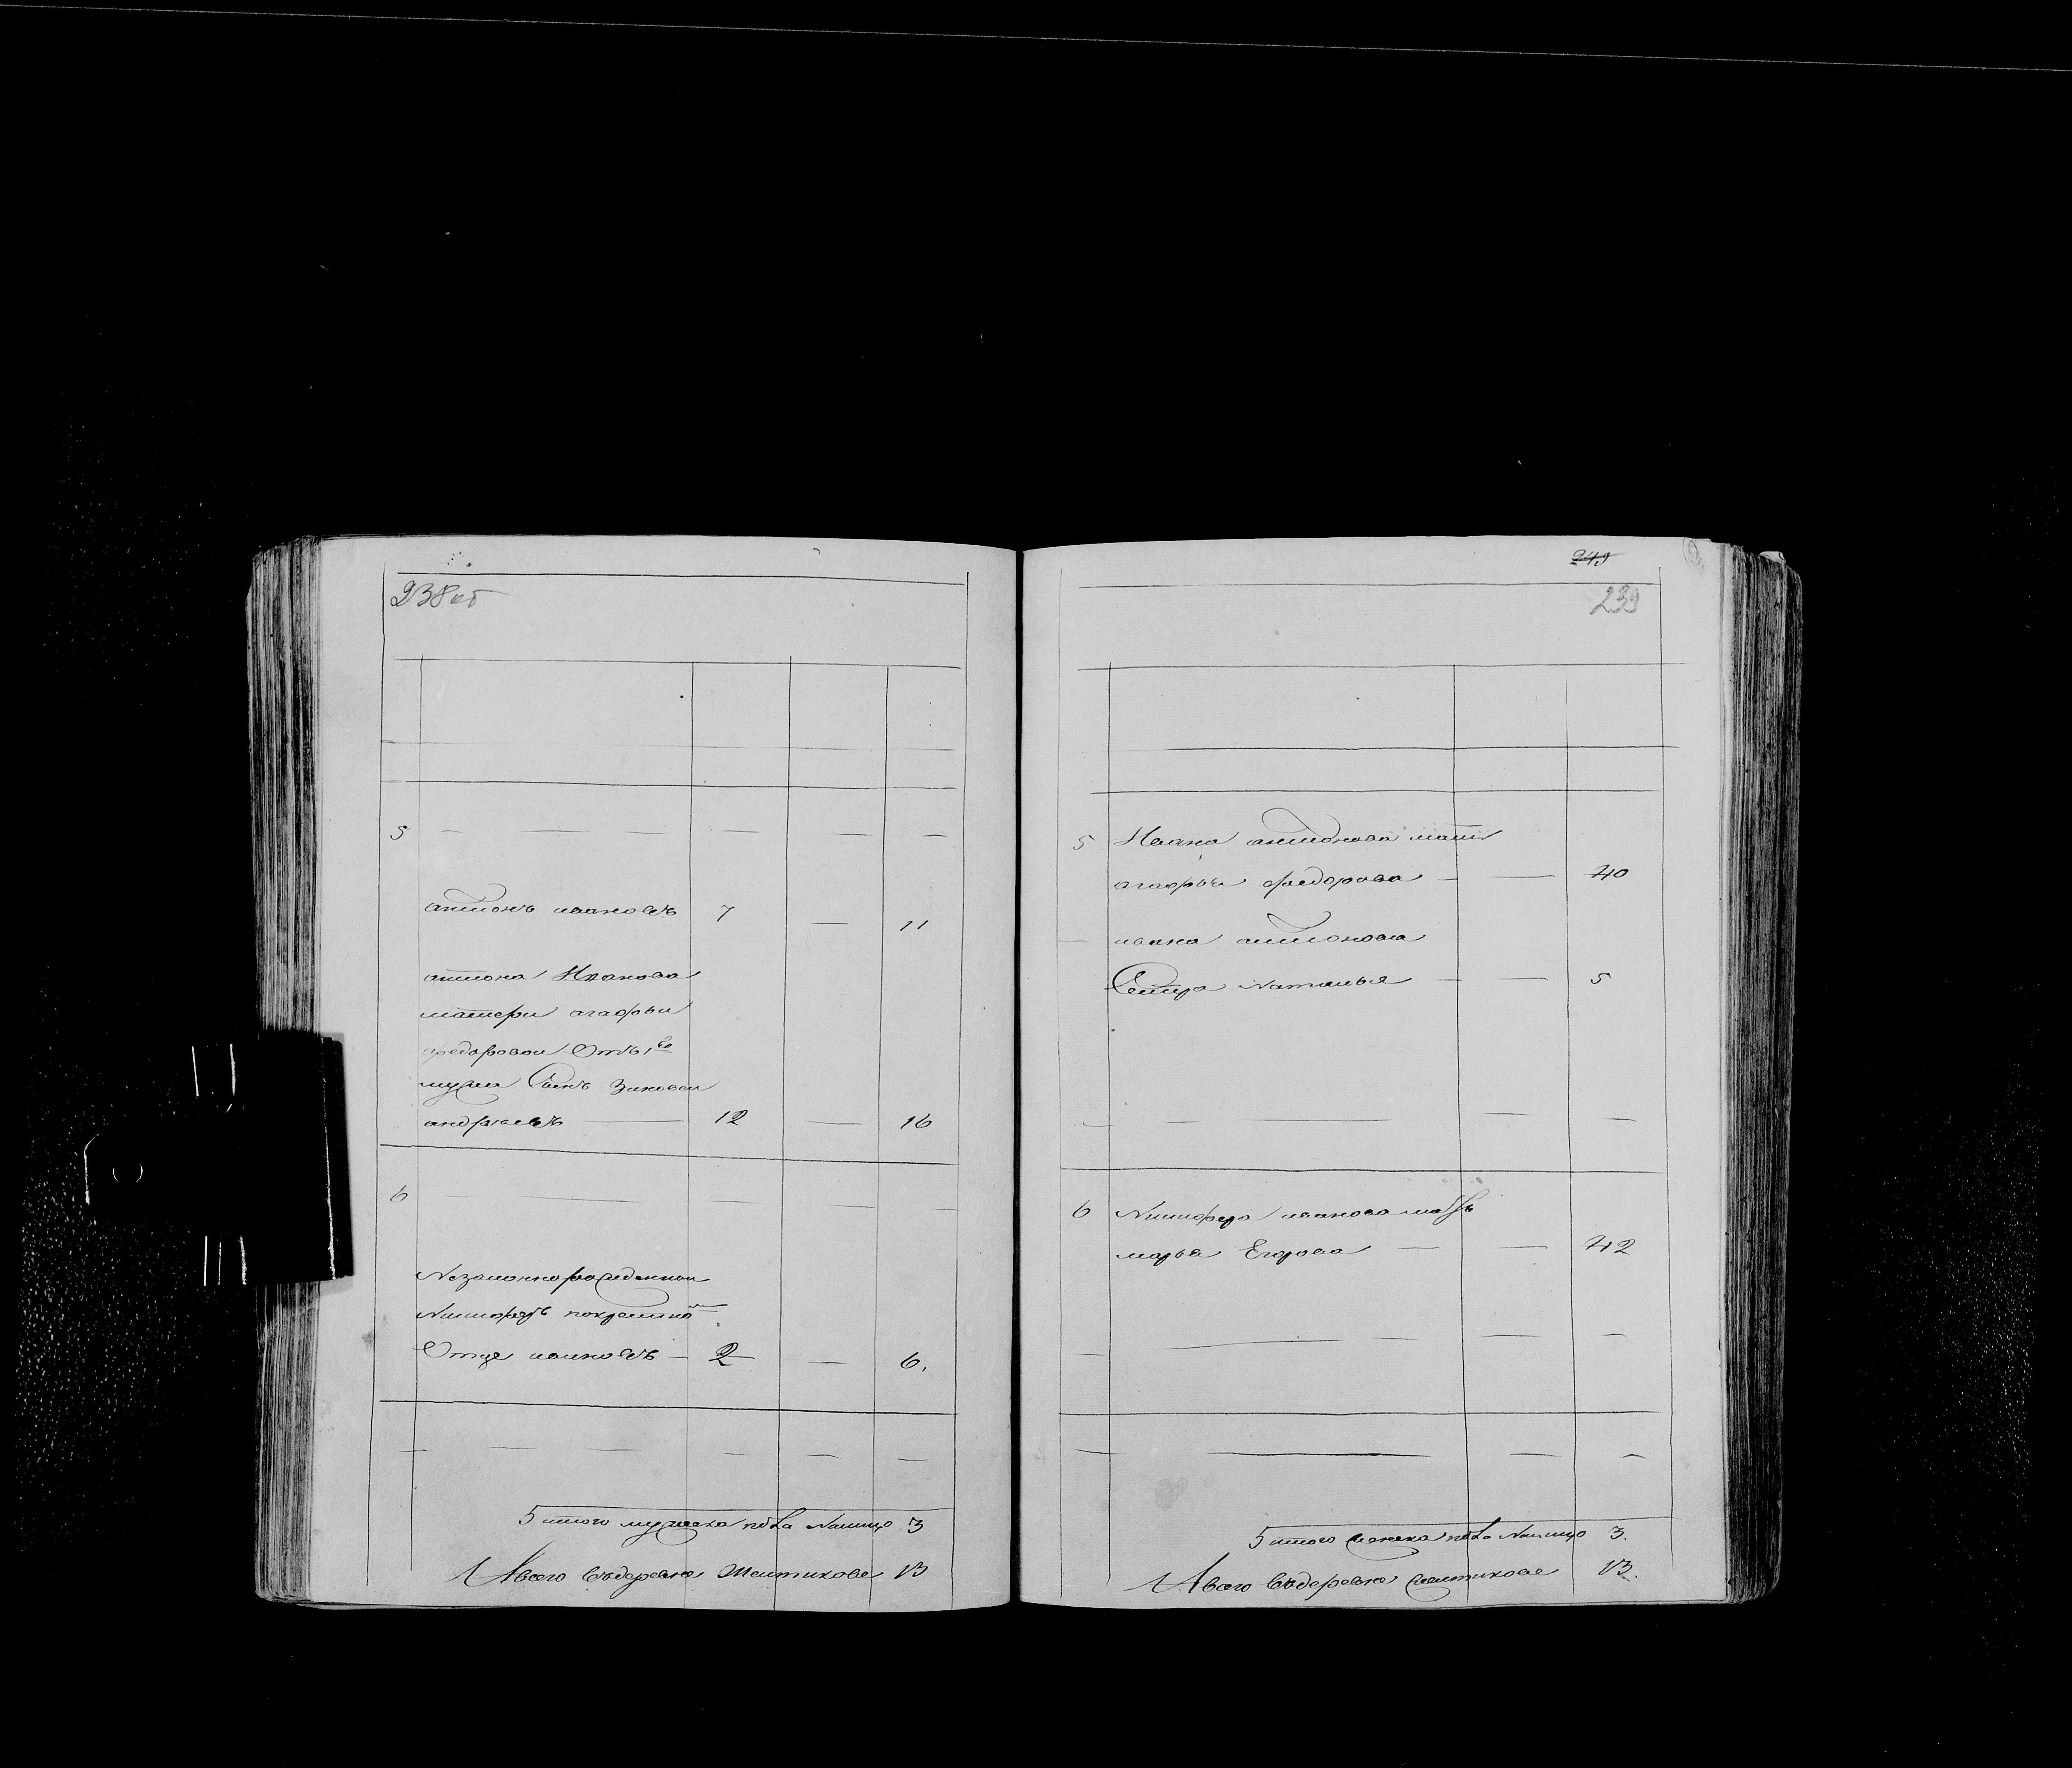 238 об
5
антонъ ивановъ 7 — 11
антона Иванова
матери агафьи
федоровой Отъ 1го
мужа Сынъ Зиновей
андреевъ — 12 — 16
6
Незаконнорожденной
Никифоръ покрестно
Отце ивановъ — 2 — 6.
итого мужеска пола налицо 3
Авсего въдеревне Желтиково 13
249
239
5 Ивана антонова мать
агафья федорова — — 40
ивана антонова
Сестра Наталья — — 5
6 Никифора иванова мать
марья Егорова — — 42
итого женска пола налицо 3.
Авсего въдеревне желтикове 13.